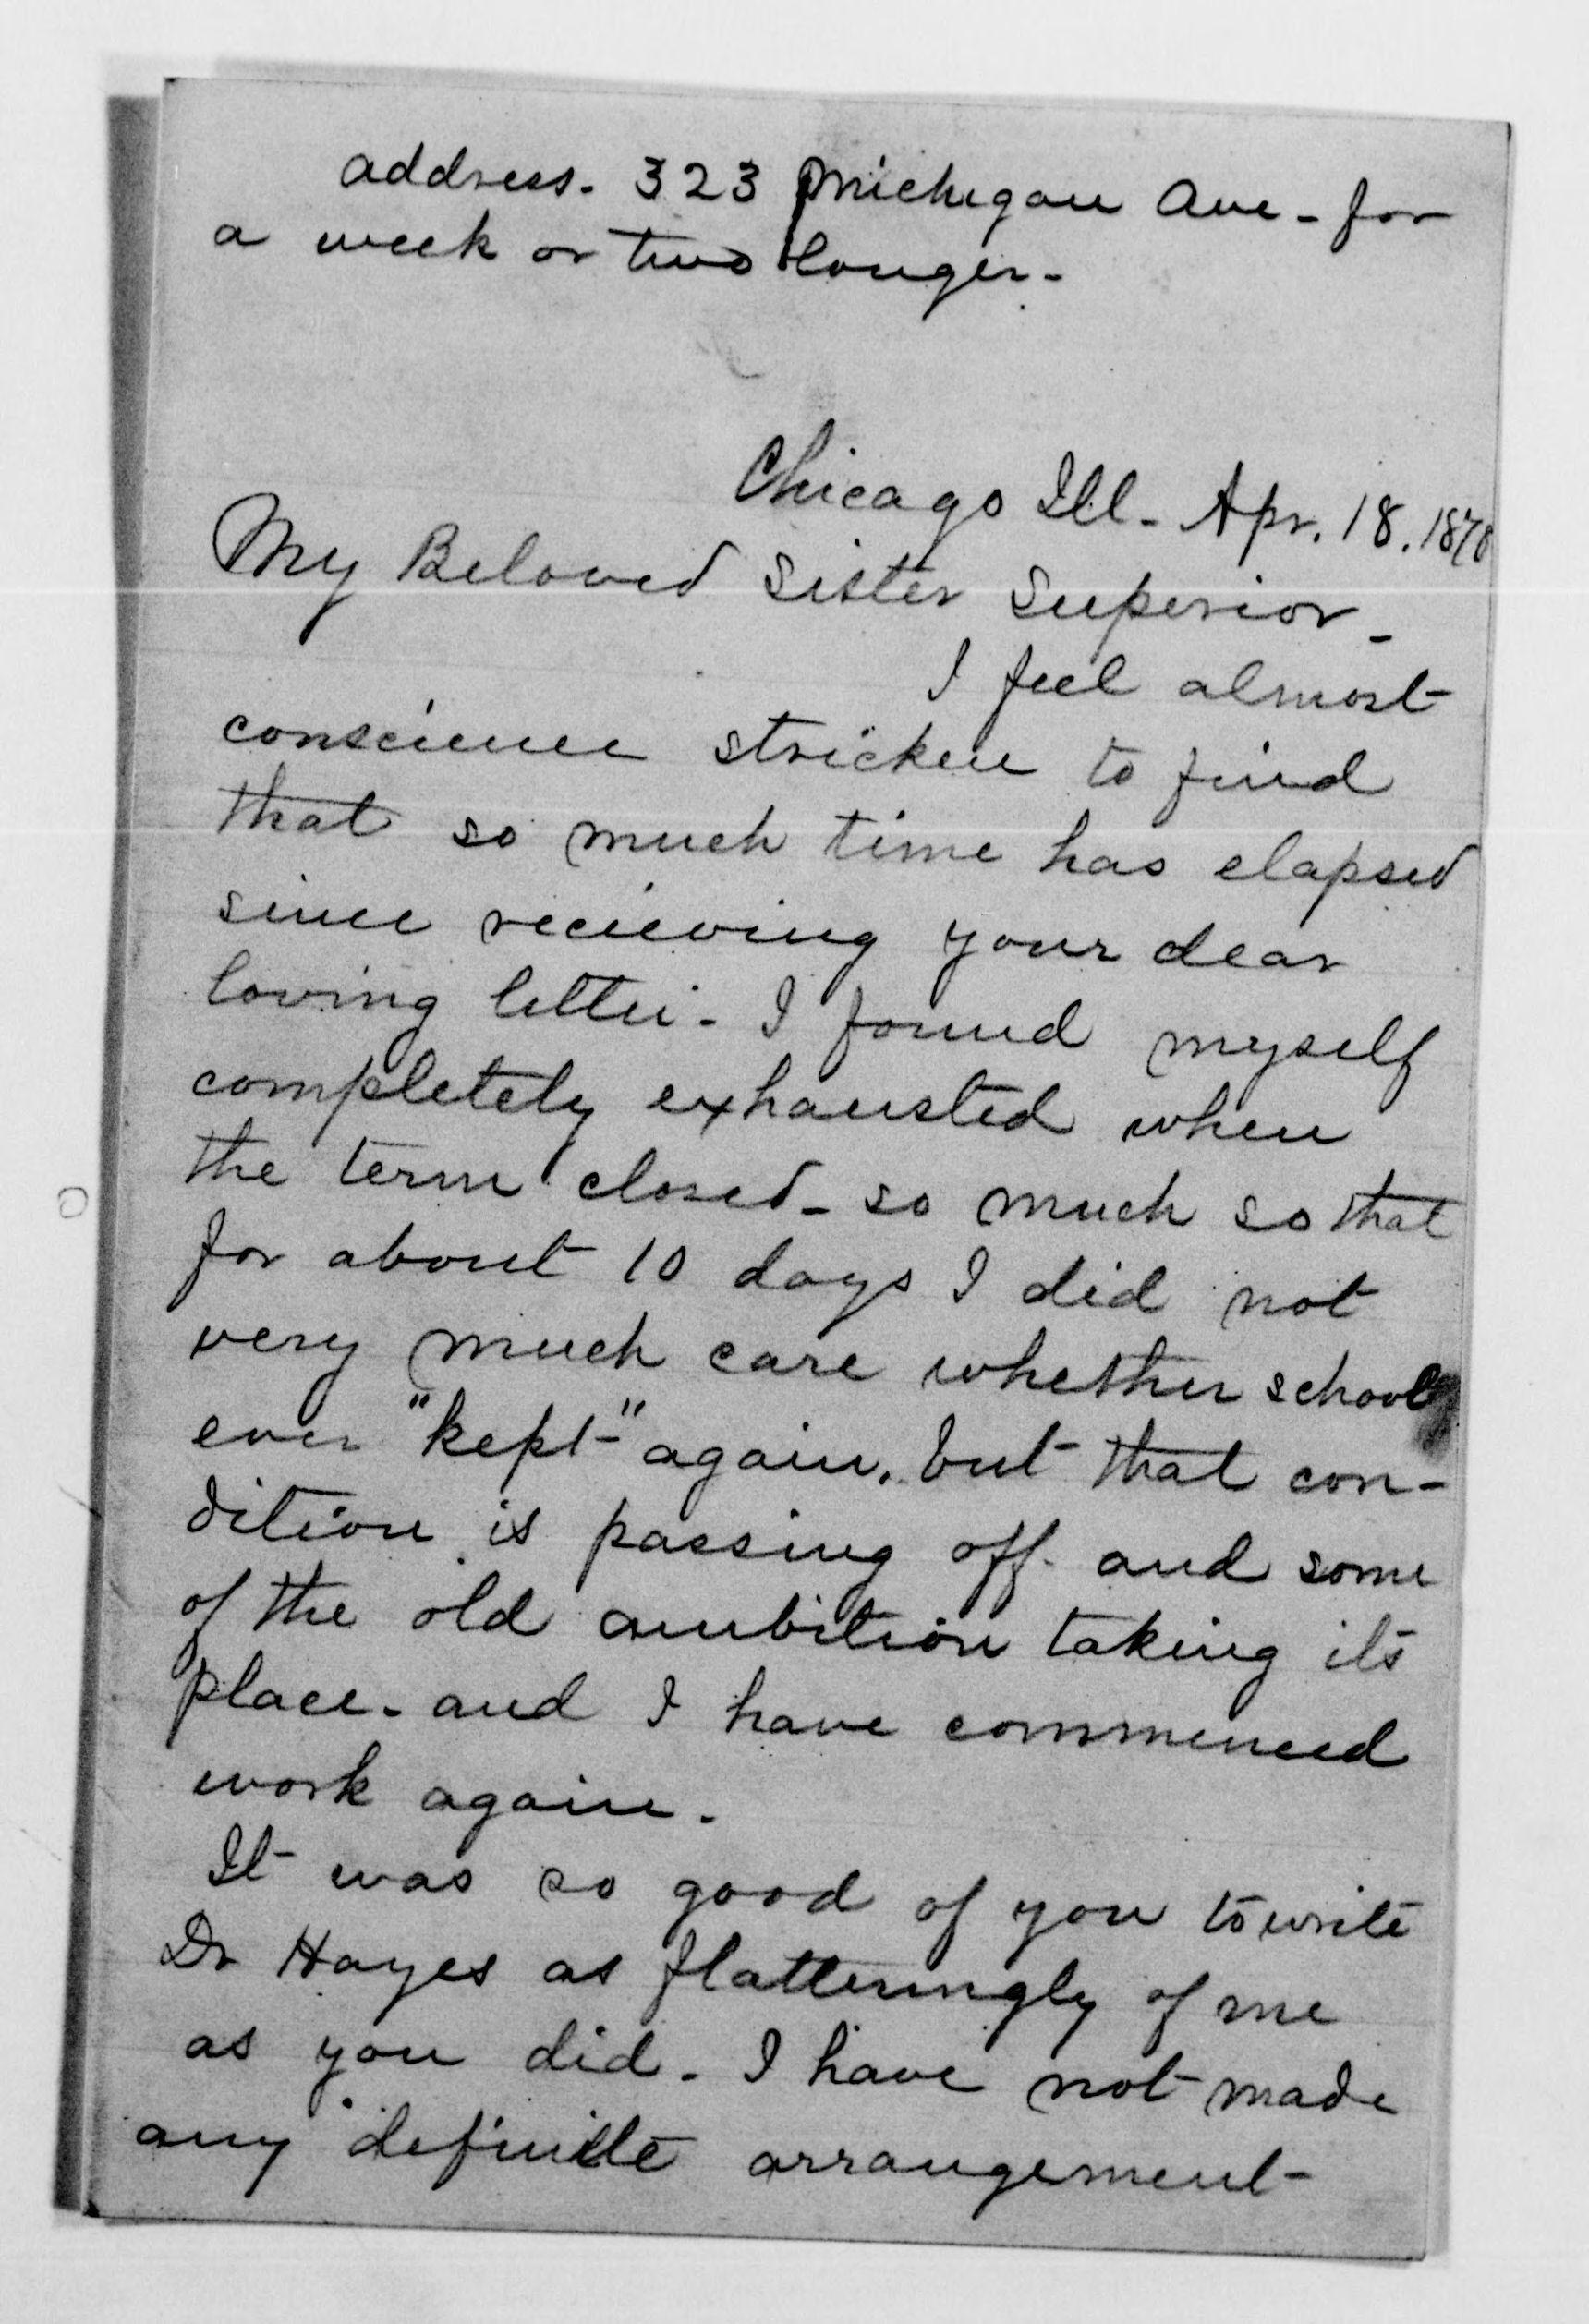 address. 323 Michigan Ave - for
a week or two longer -
Chicago Ill - Apr. 18. 1878
My Beloved Sister Superior -
I feel almost
conscience stricken to find
that so much time has elapsed
since recieving your dear
loving letter - I found myself
completely exhausted when
the term closed - so much so that
for about 10 days I did not
very much care whether school
ever "kept" again. but that con-
dition is passing off - and some
of the old ambition taking its
place - and I have commenced
work again.
It was so good of you to write
Dr Hayes as flatteringly of me
as you did - I have not made
any definite arrangement -